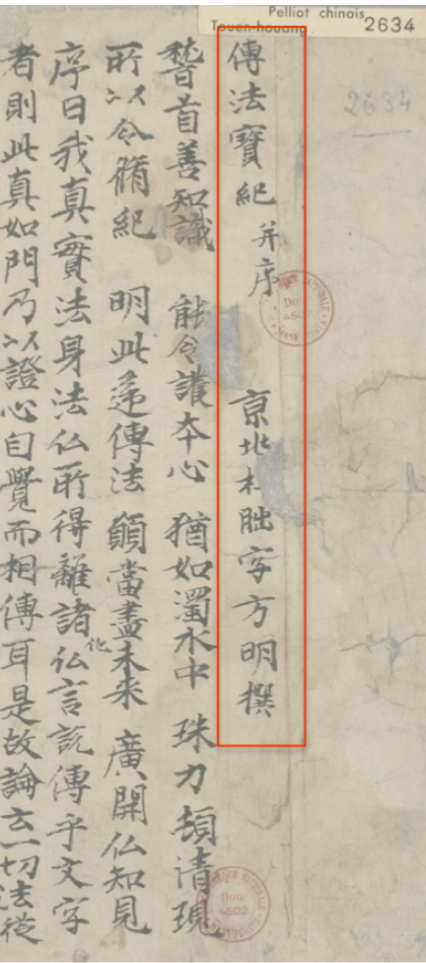 Pelliot chinois
Touen-houang 2634
2634
傳法寶紀并序 京北杜朏字方明撰
稽首善知識 能令護本心 猶如濁水中 珠力頓清現
所以令脩紀 明此遞傳法 願當盡未来 廣開仏知見
序曰我真實法身法仏所得離諸化仏言説傳乎文字
者則此真如門乃以證心自覺而相傳耳是故論云一切法從
Don
4502
Don
4502